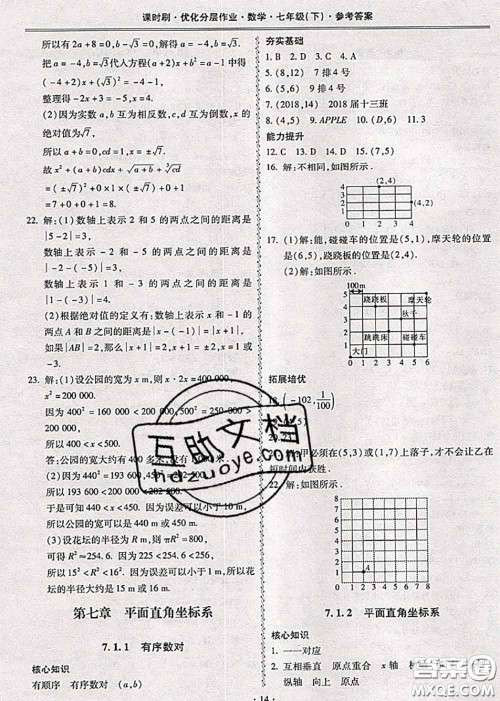 课时刷·优化分层作业·数学·七年级(下)·参考答案
所以 2a+8=0,b-√3=0,
解得 a=-4,b=√3.
把 a=-4,b=√3代入方程(a+2)x+b²=a-1,得
(-4+2)x+(√3)²=-4-1,
整理得-2x+3=-5,解得 x=4.
(2)因为实数 a,b 互为相反数,c,d 互为倒数,x 的
绝对值为√7,
所以 a+b=0,cd=1,x=±√7.
故 x²+(a+b+cd)x+√(a+b)+∛cd
=(±√7)²+(0+1)×(±√7)+0+1
=7±√7+0+1=8±√7.
22. 解:(1)数轴上表示 2 和 5 的两点之间的距离是
|5-2|=3,
数轴上表示-2 和-5 的两点之间的距离是
|-2-(-5)|=3,
数轴上表示 1 和-3 的两点之间的距离是
|1-(-3)|=4.
(2)根据绝对值的定义有:数轴上表示 x 和-1 的
两点 A 和 B 之间的距离是|x-(-1)|=|x+1|,
如果|AB|=2,那么 x+1=±2,所以 x=1 或-3.
23. 解:(1)设公园的宽为 x m,则 x·2x=400 000,
x²=200 000,
因为 400²=160 000<200 000<500²=250 000
所以 400<x<500.
答:公园的宽大约有 400 多米,没有 1000 m.
(2)因为 440²=193 600,450²=202 500,
所以 193 600<200 000<202 500,
于是可得 440<x<450. 因为误差可以小于 10 m,
所以公园的宽可以是 440 m 或 450 m.
(3)设花坛的半径是 R m,则 πR²=800,
可得 R²≈254.6. 因为误差可以小于 1 m,
所以 15²<R²<16². 因为误差可以小于 1 m,所以花
坛的半径大约是 15 m 或 16 m.
第七章 平面直角坐标系
7.1.1 有序数对
核心知识
有顺序 有序数对 (a,b)
夯实基础
1. B 2. D 3. C 4. A
5. (8,12) 7 排 4 号
6. (5,6) 9 排 4 号
7. (2018,14) 2018 届十三班
8. (4,5) 9. APPLE 10. (D,6) 11. 3
能力提升
12. C 13. D 14. C 15. A
16. 解:不相同,如图所示.
(2,4)
4
3
2
1
(4,2)
0 1 2 3 4
17. 解:(1)能,碰碰车的位置是(5,1),摩天轮的
位置是(6,5),跷跷板的位置是(2,5).
(2)如图所示.
100m
跷跷板 摩天轮
秋千
跳跳床 碰碰车
大门
0 1 2 3 4 5 6
拓展培优
(-102, 1/100)
甲必须在(5,3)或(1,7)上落子,才不会让乙在
短时间内获胜.
22. 解:如图所示.
8
7
6
5
4
3
2
1
A
0 1 2 3 4 5 6 7 8
7.1.2 平面直角坐标系
核心知识
1. 一一对应
2. 互相垂直 原点重合 x 轴
纵轴 向上 原点
·14·
互助文档
hdzuoye.com
答案圈
MXQE.COM